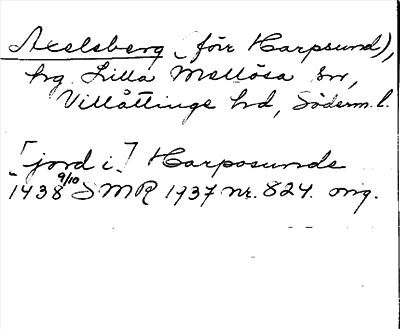 Axelsberg (förr Harpsund),
hg Lilla Mellösa sn,
Villåttinge hd, Söderm. l.
[jord i] Harposunde
1438 9/10 SMR 1937 nr. 824. orig.